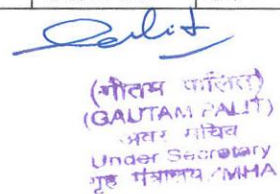 (गौतम पालित)
(GAUTAM PALIT)
अवर सचिव
Under Secretary
गृह मंत्रालय/MHA